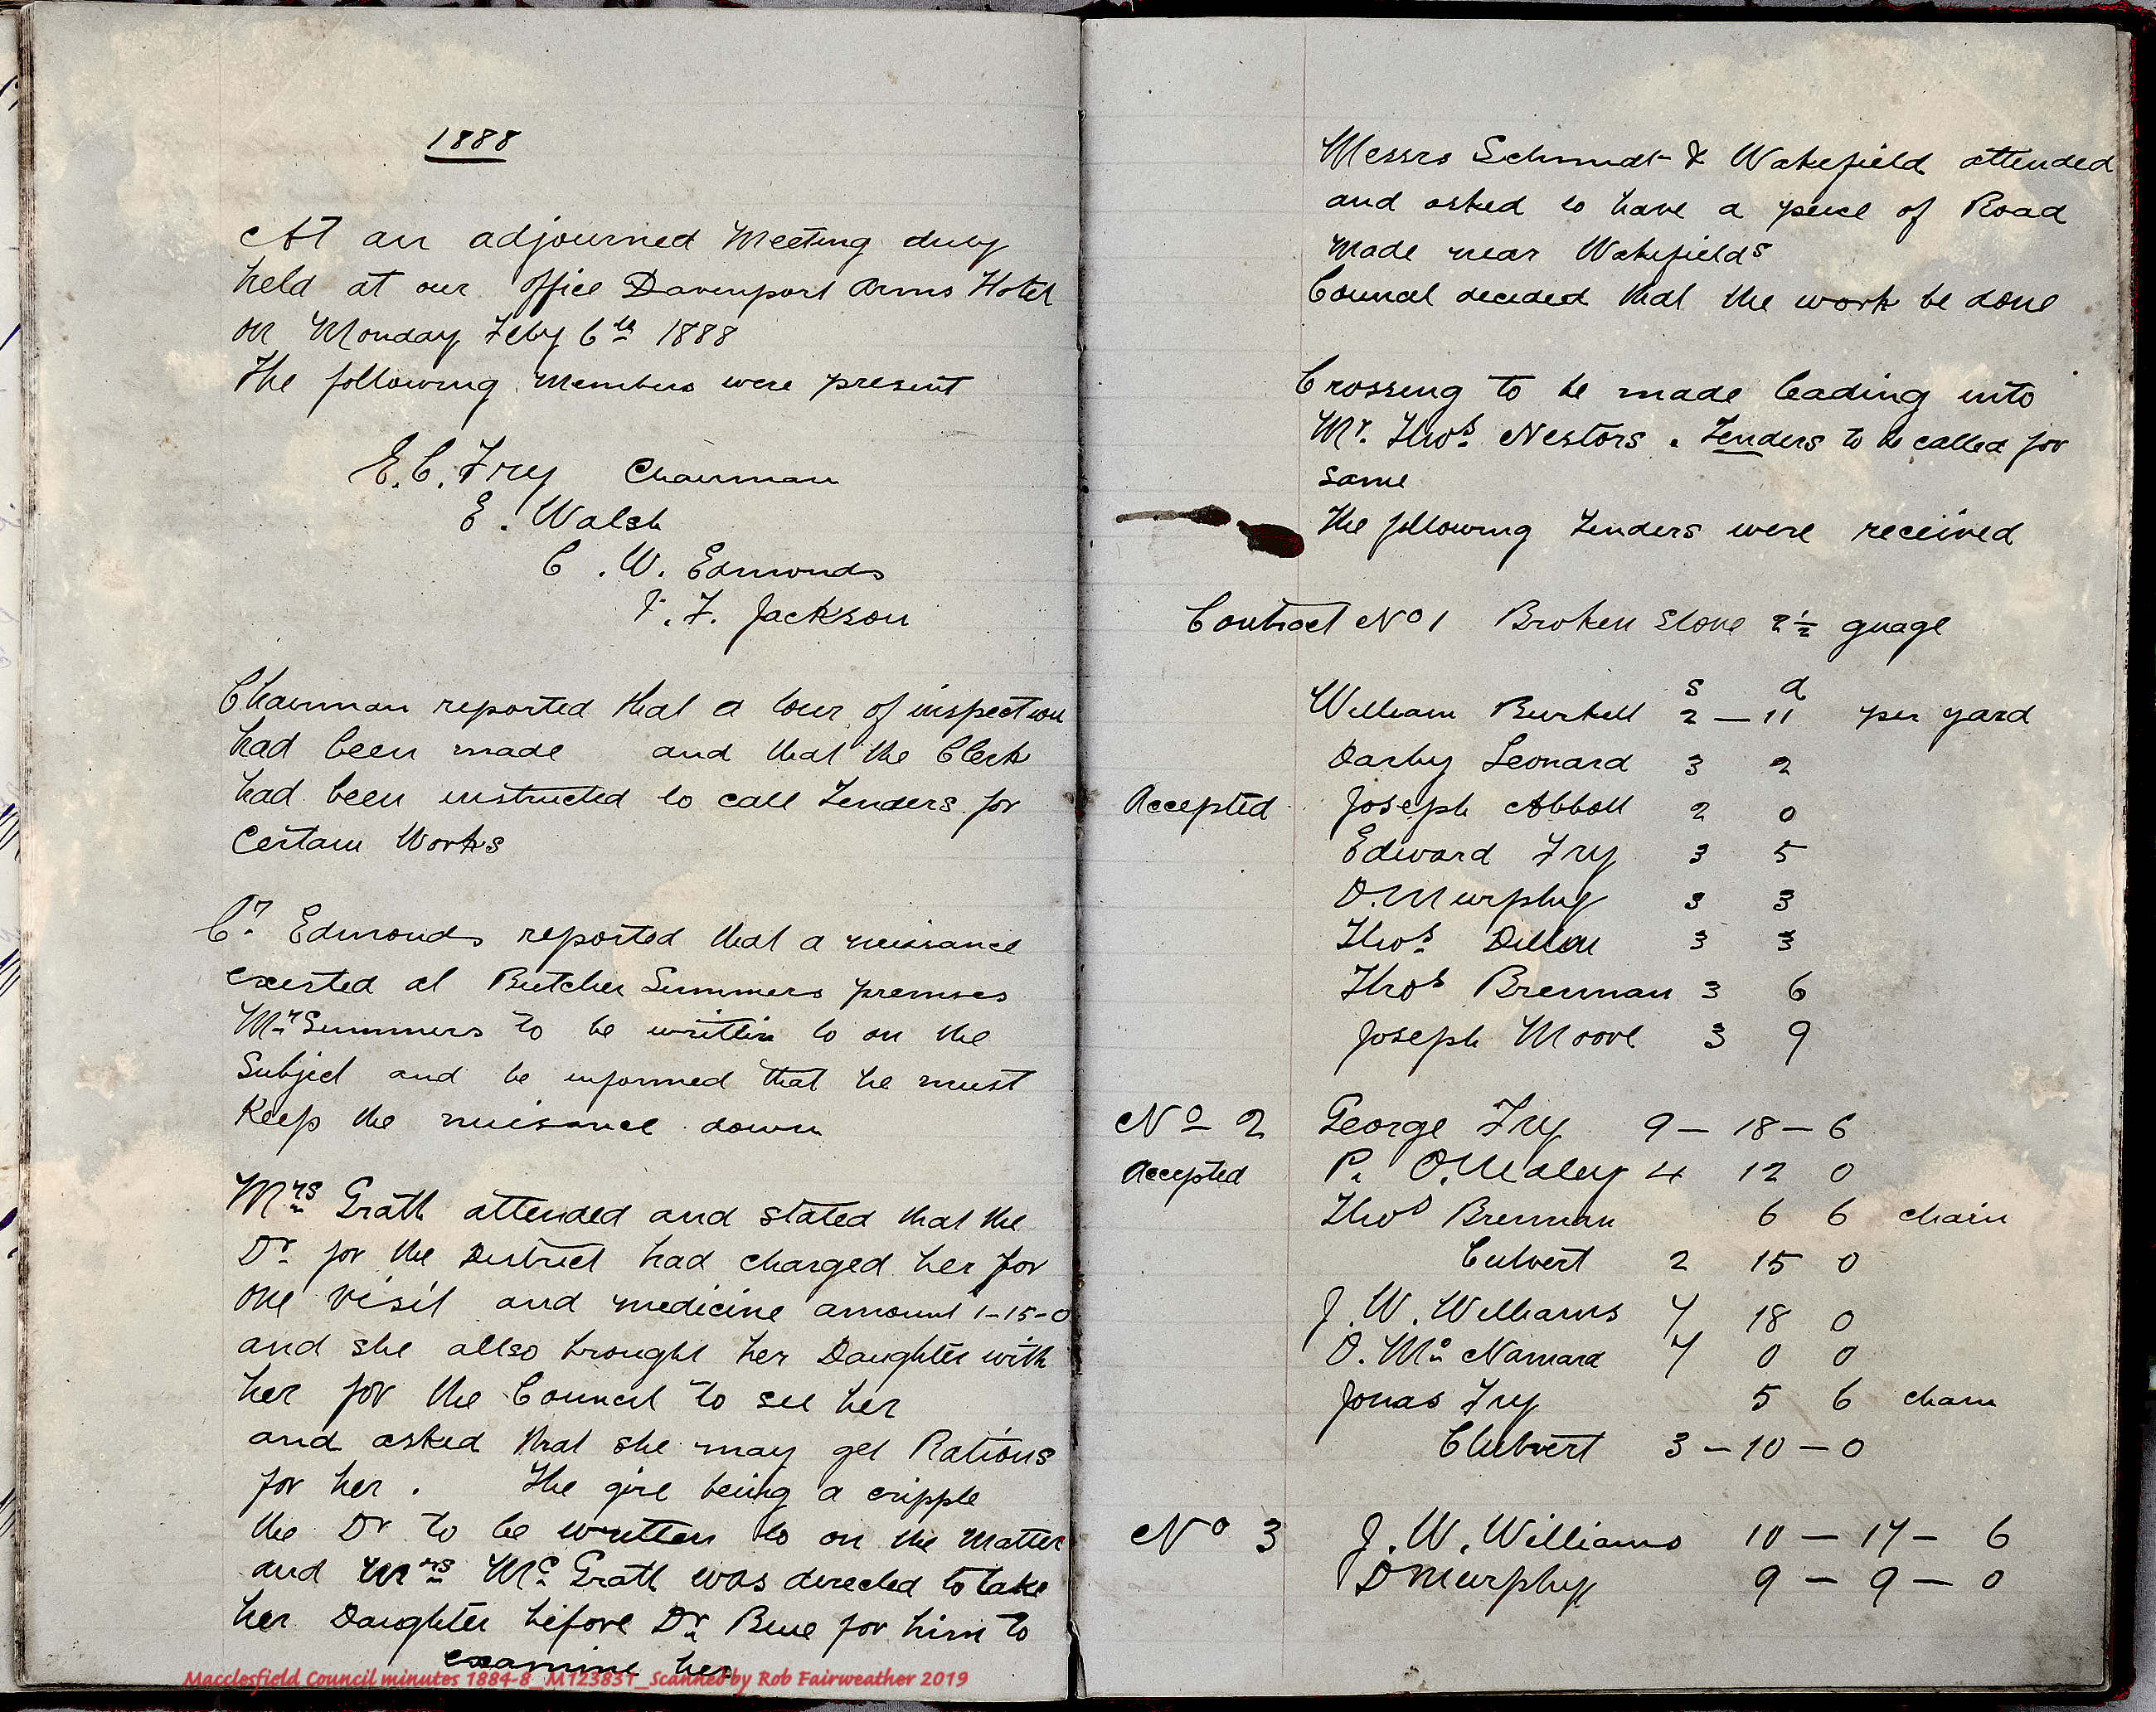 1888
At an adjourned Meeting duly
held at our Office Davenport Arms Hotel
on Monday Feby 6th 1888
The following Members were present
E. C. Fry Chairman
E. Walsh
C. W. Edmonds
J. F. Jackson
Chairman reported that a tour of inspection
had been made and that the Clerk
had been instructed to call Tenders for
Certain Works
Cr. Edmonds reported that a nuisance
existed at Butcher Summers premises
Mr Summers to be written to on the
Subject and be informed that he must
Keep the nuisance down
Mrs Grath attended and stated that the
Dr for the District had charged her for
one visit and medicine amount 1-15-0
and she allso brought her Daughter with
her for the Council to see her
and asked that she may get Rations
for her. The girl being a cripple
the Dr to be written to on the Matter
and Mrs Mc Grath was directed to take
her Daughter before Dr Blue for him to
examine her
Macclesfield Council minutes 1884-8_M123831_Scanned by Rob Fairweather 2019
Messrs Schmidt & Wakefield attended
and asked to have a piece of Road
Made near Wakefields
Council decided that the work be done
Crossing to be made leading into
Mr. Thos. Nestors. Tenders to be called for
same
The following Tenders were received
Contract No 1 Broken Stone 2½ guage
s d
William Burkell 2 — 11 per yard
Darby Leonard 3 2
Accepted Joseph Abbott 2 0
Edward Fry 3 5
D. Murphy 3 3
Thos. Dillon 3 3
Thos Brennan 3 6
Joseph Moore 3 9
No 2 George Fry 9 — 18 — 6
Accepted P. O.Maley 4 12 0
Thos Brennan 6 6 chain
Culvert 2 15 0
J. W. Williams 7 18 0
D. Mc Namara 7 0 0
Jonas Fry 5 6 chain
Clulvert 3 — 10 — 0
No 3 J. W. Williams 10 — 17 — 6
D Murphy 9 — 9 — 0